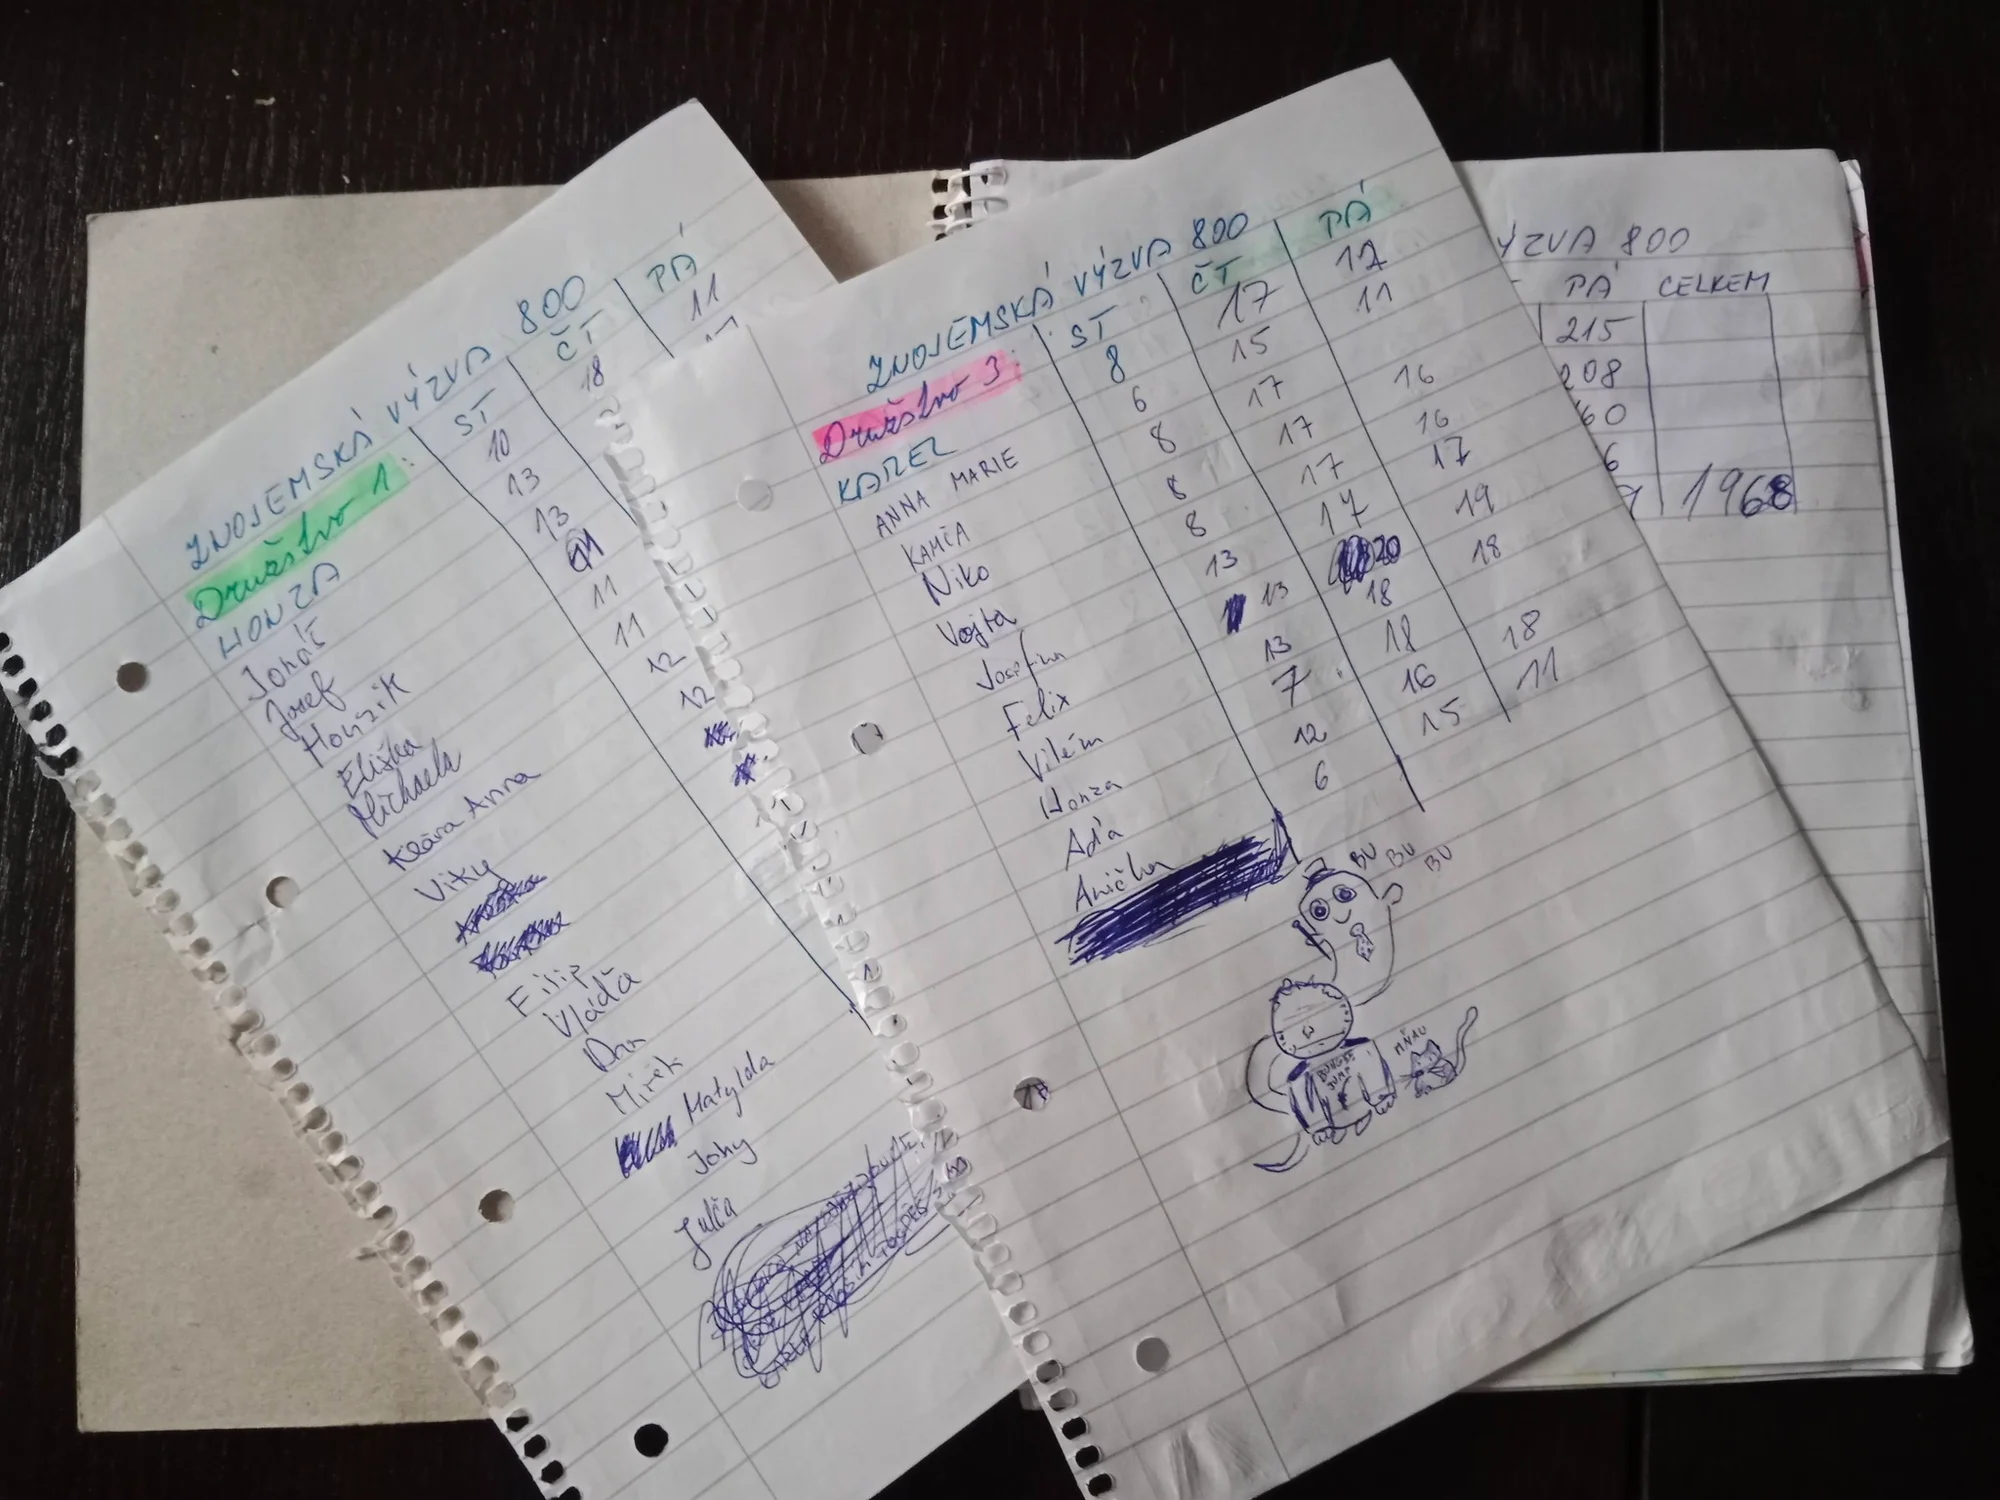 ZNOJEMSKÁ VÝZVA 800
Družstvo 1: ST ČT PÁ
HONZA 10 18 11
Jonáš 13
Josef 13
Honzík 11
Eliška 11
Michaela 11
Klára Anna 12
Viky 12
Filip
Vláďa
Dan
Mirek
Matylda
Johy
Julča
ZNOJEMSKÁ VÝZVA 800
Družstvo 3: ST ČT PÁ
KAREL 8 17 12
ANNA MARIE 6 15 11
KAMČA 8 17
Niko 8 17 16
Vojta 8 17 16
Josefína 13 17 17
Felix 13 20 19
Vilém 13 18 18
Honza 7 18
Aďa 12 16 18
Anička 6 15 11
BU BU BU
BUNGEE JUMP
MŇAU
ÝZVA 800
PÁ CELKEM
215
208
60
6
1968